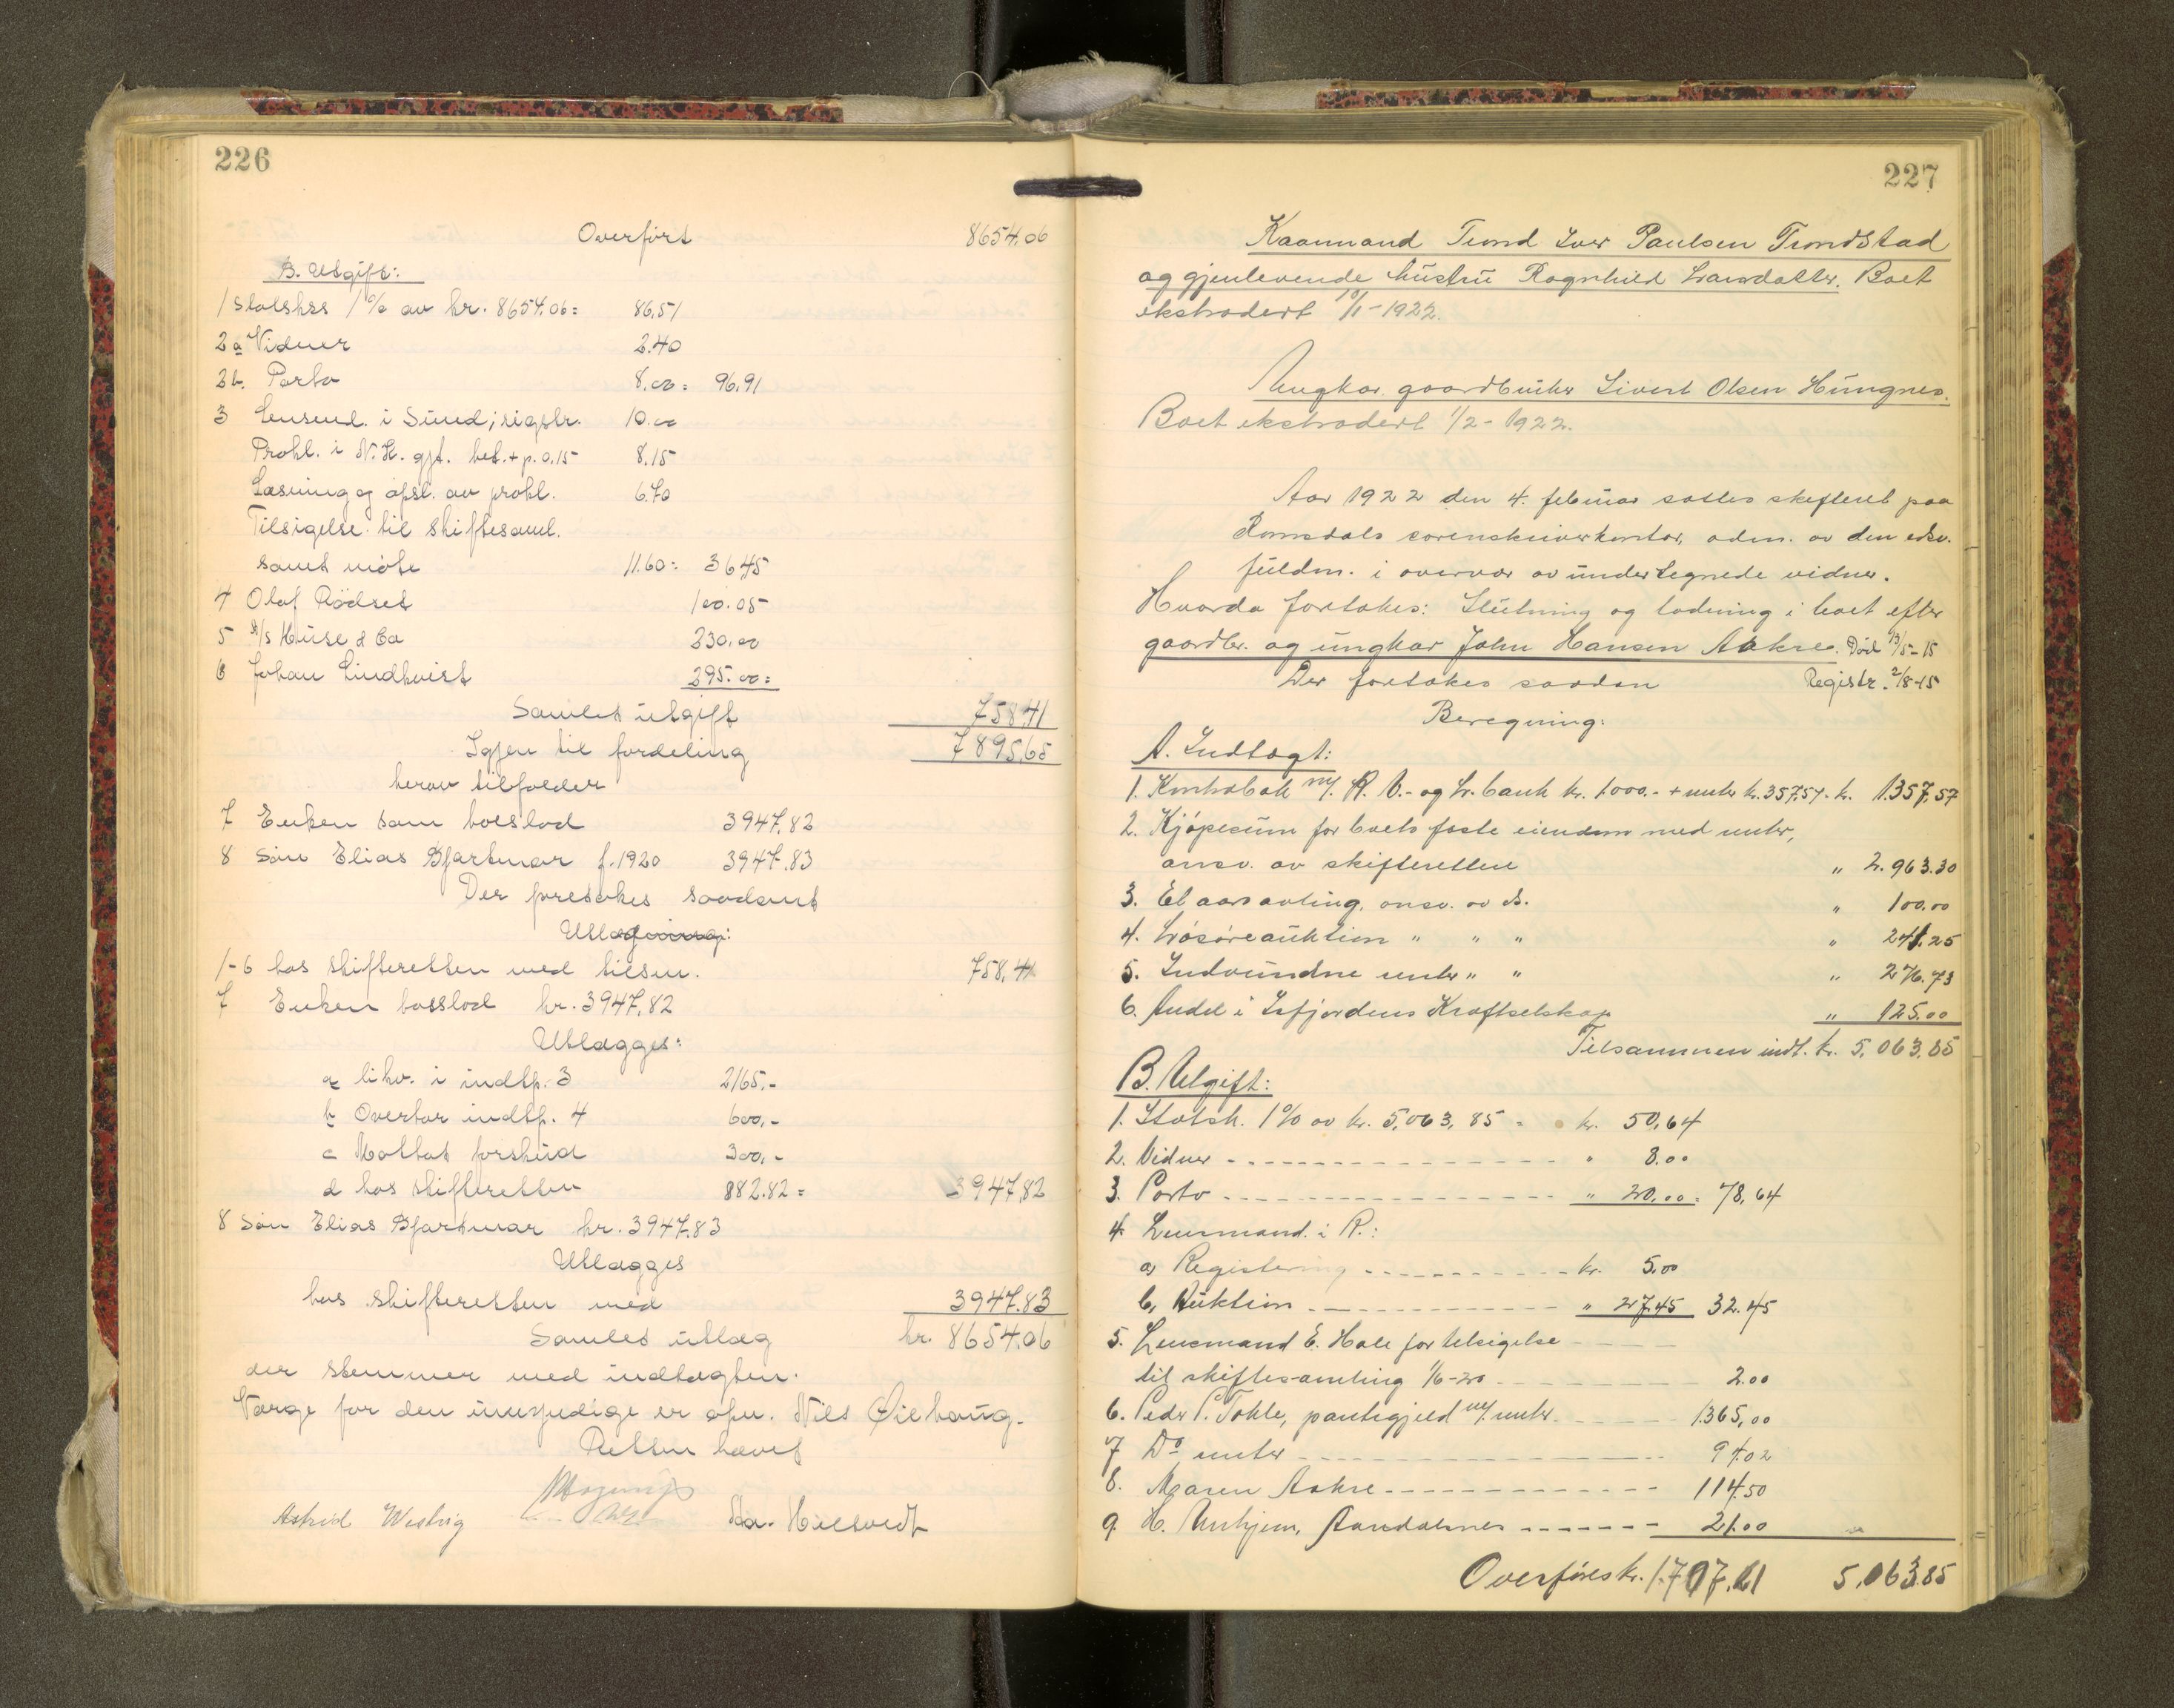 226
Overført 8654.06
B. Utgift:
1 Statskas 1% av kr. 8654.06 = 86.51
2a Vidner 2.40
2b. Porto 8.00 = 96.91
3 Lensmd. i Sund; rigstr. 10.00
Prokl. i N. K. gjt. bet. + p. 0.15 8.15
Læsning og opsl. av prokl. 6.70
Tilsigelse til skiftesaml.
samt møte 11.60 = 36.45
4 Olaf Rödset 100.05
5 A/s Huse & Co 230.00
6 Johan Lindkvist 295.00 =
Samlet utgift 758.41
Igjen til fordeling 7895.65
herav tilfalder
7 Enken som boeslod 3947.82
8 Søn Elias Hjartmar f. 1920 3947.83
Der foretokes saadant
Utlæg:
1-6 hos skifteretten med tilsm. 758.41
7 Enken boeslod kr. 3947,82
Utlægges:
a likv. i indtp. 3 2165.-
b Overtar indtp. 4 600,-
c Mottat forskud 300,-
d hos skifteretten 882.82 = 3947,82
8 Søn Elias Hjartmar kr. 3947.83
Utlægges
hos skifteretten med 3947.83
Samlet utlæg kr. 8654.06
der stemmer med indtægten.
Værge for den umyndige er opn. Nils Øiehaug.
Retten hævet
Astrid Westvig

227
Kaarmand Trond Iver Paulsen Trondstad
og gjenlevende hustru Ragnhild Larsdatter. Boet
ekstradert 10/1-1922.
Ungkar gaardbruker Sivert Olsen Hungnes.
Boet ekstradert 1/2-1922.
Aar 1922 den 4. februar sattes skifteret paa
Romsdals sorenskriverkontor, adm. av den edsv.
fuldm. i overvær av undertegnede vidner.
Hvorda foretokes: Slutning og lodning i boet efter
gaardbr. og ungkar John Hansen Aakre. Død 13/5-15
Der foretokes saadan Registr. 2/8-15
Beregning:
A. Indtægt:
1. Kontrabok m/. R. V.- og L. bank kr. 1.000.- + renter kr. 357,57.- kr. 1.357,57
2. Kjøpesum for boets faste eiendom med renter,
ansv. av skifteretten " 2.963.30
3. Et aars avling, ansv. av do. " 100.00
4. Løsøreauktion " " " " 241.25
5. Indvundne renter " " " 276.73
6. Andel i Isfjordens Kraftselskap " 125.00
Tilsammen indt. kr. 5,063,85
B. Utgift:
1. Statsk. 1% av kr. 5.063,85 = kr. 50,64
2. Vidner " 8.00
3. Porto " 20.00 = 78,64
4. Lensmand. i R.:
a, Registering kr. 5.00
b, Auktion " 27.45 32.45
5. Lensmand E. Hole for tilsigelse
til skiftesamling 1/6-20 2.00
6. Peder P. Tokle, pantegjeld m/. renter 1365,00
7 Do renter 94.02
8. Maren Aakre 114.50
9. H. Unhjem, Aandalsnes 21.00
Overføres kr. 1.707.61 5,063.85